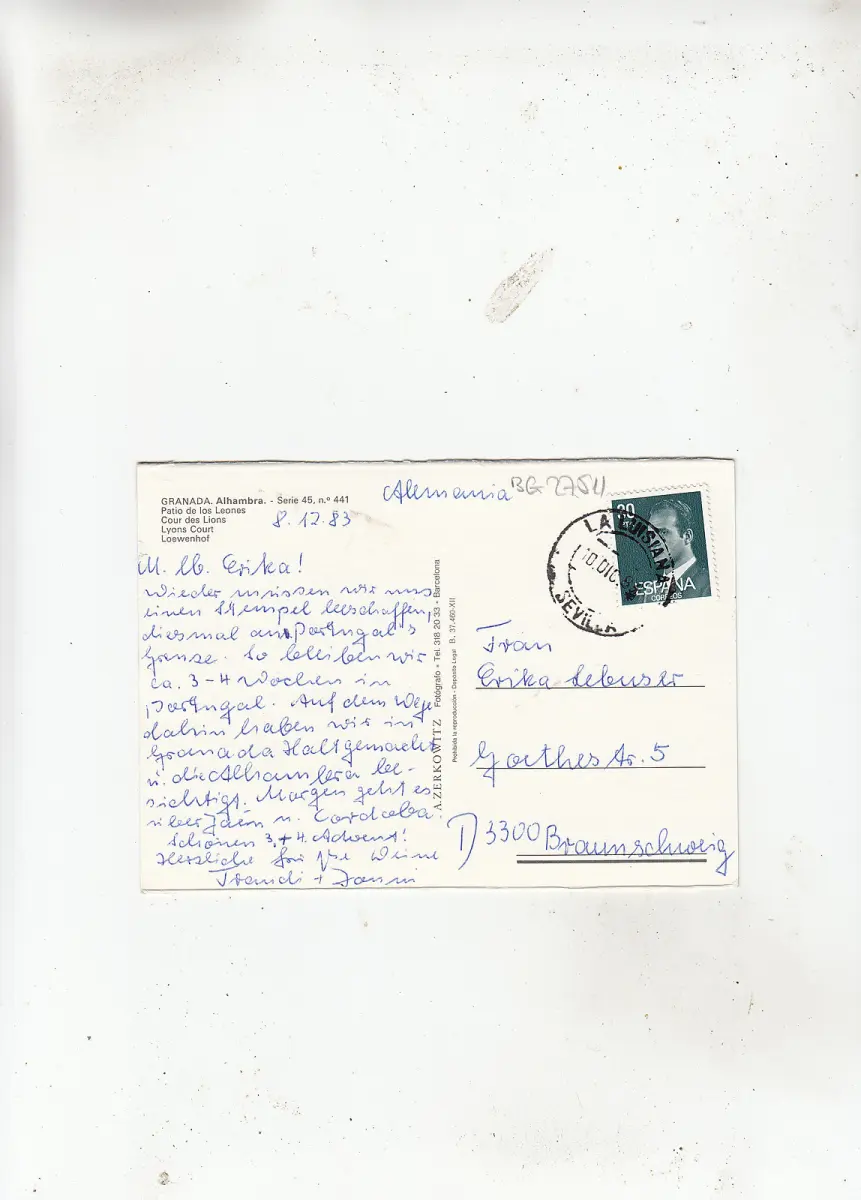 GRANADA. Alhambra. - Serie 45, n.º 441
Patio de los Leones
Cour des Lions
Lyons Court
Loewenhof
8.12.83
Alemania
BG 2754
M. lb. Erika!
Wieder müssen wir uns
einen Stempel beschaffen,
diesmal an Portugal's
Grenze. So bleiben wir
ca. 3-4 Wochen in
Portugal. Auf dem Wege
dahin haben wir in
Granada Halt gemacht
u. die Alhambra be-
sichtigt. Morgen geht es
über Jaén n. Cordoba.
Schönen 3.+4. Advent!
Herzliche
A. ZERKOWITZ Fotógrafo • Tel. 318 20 33 - Barcelona
Prohibida la reproducción - Depósito Legal B. 37.460-XII
ESPAÑA
CORREOS
10 DIC
SEVILLA
Frau
Erika
Goethestr. 5
D 3300 Braunschweig